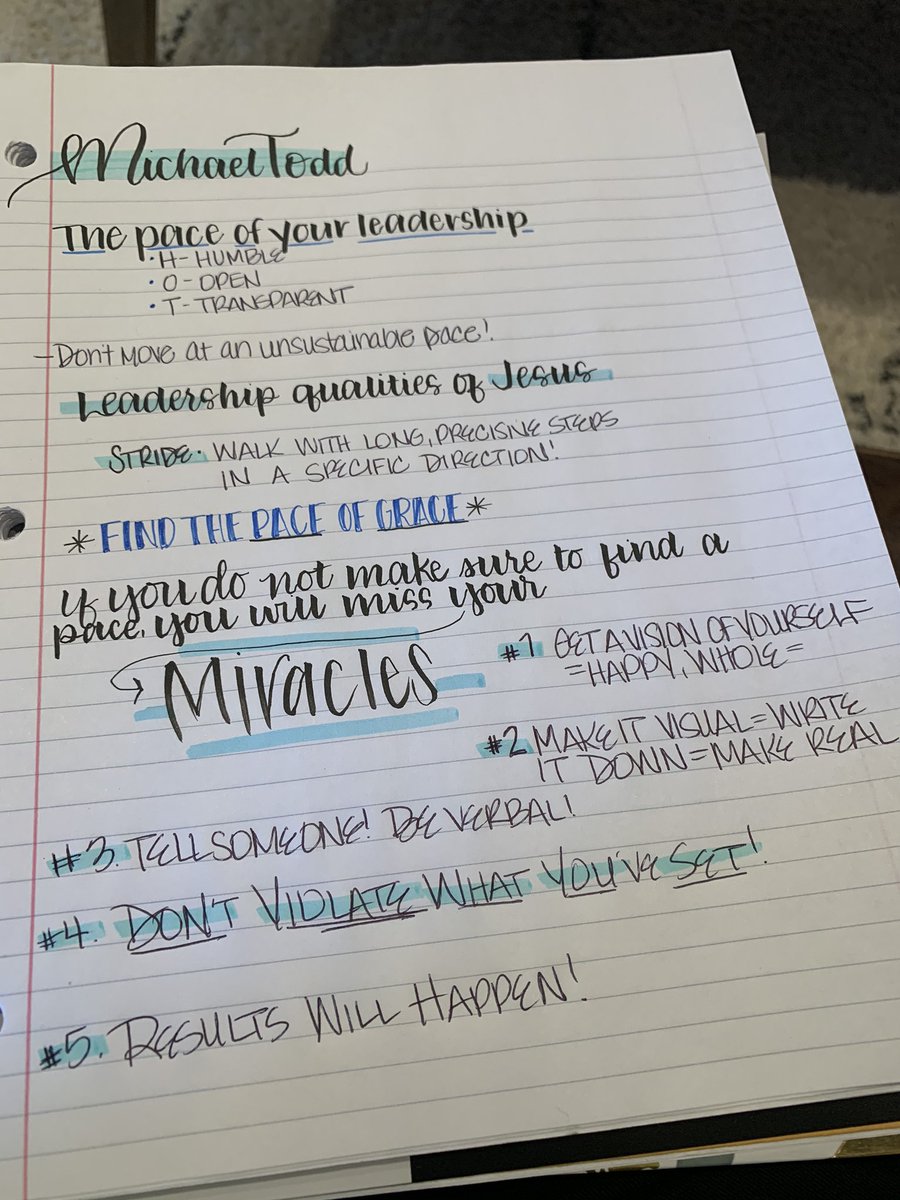 Michael Todd
The pace of your leadership
• H - HUMBLE
• O - OPEN
• T - TRANSPARENT
- Don't Move at an unsustainable pace!
Leadership qualities of Jesus
STRIDE • WALK WITH LONG, PRECISIVE STEPS
IN A SPECIFIC DIRECTION!
* FIND THE PACE OF GRACE *
if you do not make sure to find a
pace, you will miss your
Miracles
#1 GET A VISION OF YOURSELF
= HAPPY, WHOLE =
#2 MAKE IT VISUAL = WRITE
IT DOWN = MAKE REAL
#3. TELL SOMEONE! BE VERBAL!
#4. DON'T VIOLATE WHAT YOU'VE SET!
#5. RESULTS WILL HAPPEN!